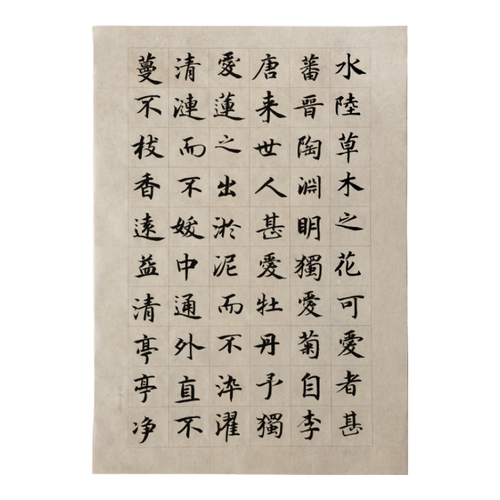 水陸草木之花可愛者甚
蕃晋陶淵明獨愛菊自李
唐来世人甚愛牡丹予獨
愛蓮之出淤泥而不染濯
清漣而不媛中通外直不
蔓不枝香遠益清亭亭净